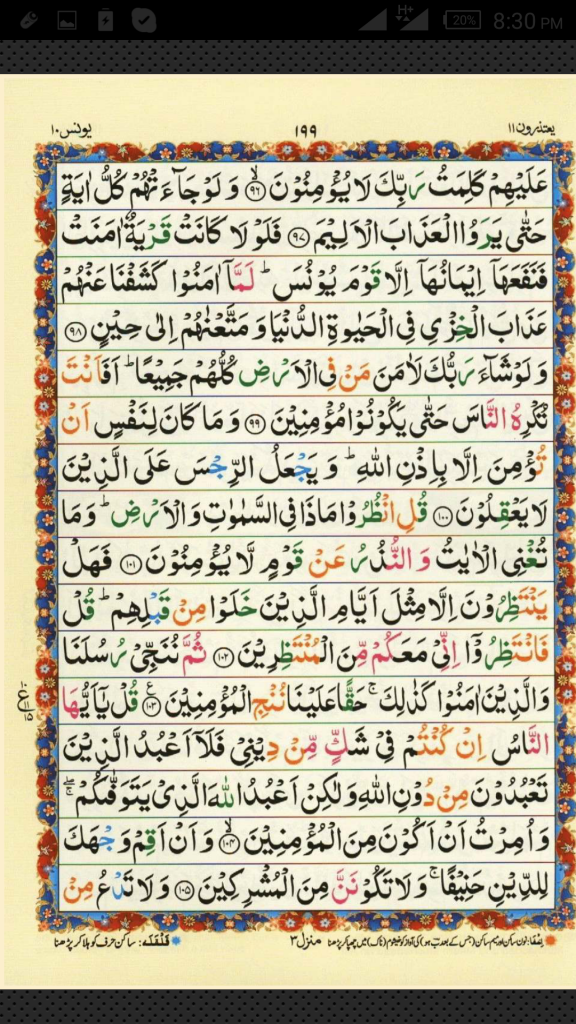 H+
20%
8:30 PM
یعتذرون ۱۱
۱۹۹
یونس ۱۰
عَلَيْهِمْ كَلِمَتُ رَبِّكَ لَا يُؤْمِنُوْنَ ۙ﴿۹۶﴾ وَ لَوْ جَآءَتْهُمْ كُلُّ اٰيَةٍ
حَتّٰى يَرَوُا الْعَذَابَ الْاَلِيْمَ ﴿۹۷﴾ فَلَوْ لَا كَانَتْ قَرْيَةٌ اٰمَنَتْ
فَنَفَعَهَاۤ اِيْمَانُهَاۤ اِلَّا قَوْمَ يُوْنُسَ ؕ لَمَّاۤ اٰمَنُوْا كَشَفْنَا عَنْهُمْ
عَذَابَ الْخِزْىِ فِى الْحَيٰوةِ الدُّنْيَا وَ مَتَّعْنٰهُمْ اِلٰى حِيْنٍ ﴿۹۸﴾
وَ لَوْ شَآءَ رَبُّكَ لَاٰمَنَ مَنْ فِى الْاَرْضِ كُلُّهُمْ جَمِيْعًا ؕ اَفَاَنْتَ
تُكْرِهُ النَّاسَ حَتّٰى يَكُوْنُوْا مُؤْمِنِيْنَ ﴿۹۹﴾ وَ مَا كَانَ لِنَفْسٍ اَنْ
تُؤْمِنَ اِلَّا بِاِذْنِ اللّٰهِ ؕ وَ يَجْعَلُ الرِّجْسَ عَلَى الَّذِيْنَ
لَا يَعْقِلُوْنَ ﴿۱۰۰﴾ قُلِ انْظُرُوْا مَاذَا فِى السَّمٰوٰتِ وَ الْاَرْضِ ؕ وَ مَا
تُغْنِى الْاٰيٰتُ وَ النُّذُرُ عَنْ قَوْمٍ لَّا يُؤْمِنُوْنَ ﴿۱۰۱﴾ فَهَلْ
يَنْتَظِرُوْنَ اِلَّا مِثْلَ اَيَّامِ الَّذِيْنَ خَلَوْا مِنْ قَبْلِهِمْ ؕ قُلْ
فَانْتَظِرُوْۤا اِنِّىْ مَعَكُمْ مِّنَ الْمُنْتَظِرِيْنَ ﴿۱۰۲﴾ ثُمَّ نُنَجِّىْ رُسُلَنَا
وَ الَّذِيْنَ اٰمَنُوْا كَذٰلِكَ ۚ حَقًّا عَلَيْنَا نُنْجِ الْمُؤْمِنِيْنَ ﴿۱۰۳﴾ قُلْ يٰۤاَيُّهَا
النَّاسُ اِنْ كُنْتُمْ فِىْ شَكٍّ مِّنْ دِيْنِىْ فَلَاۤ اَعْبُدُ الَّذِيْنَ
تَعْبُدُوْنَ مِنْ دُوْنِ اللّٰهِ وَ لٰكِنْ اَعْبُدُ اللّٰهَ الَّذِىْ يَتَوَفّٰىكُمْ ۖۚ
وَ اُمِرْتُ اَنْ اَكُوْنَ مِنَ الْمُؤْمِنِيْنَ ۙ﴿۱۰۴﴾ وَ اَنْ اَقِمْ وَجْهَكَ
لِلدِّيْنِ حَنِيْفًا ۚ وَ لَا تَكُوْنَنَّ مِنَ الْمُشْرِكِيْنَ ﴿۱۰۵﴾ وَ لَا تَدْعُ مِنْ
اِخفَا: نون ساکن اور میم ساکن (جس کے بعد ب ہو) کی آواز کو خیشوم (ناک) میں چھپا کر پڑھنا
منزل ۳
قَلقَلَه: ساکن حرف کو ہلا کر پڑھنا